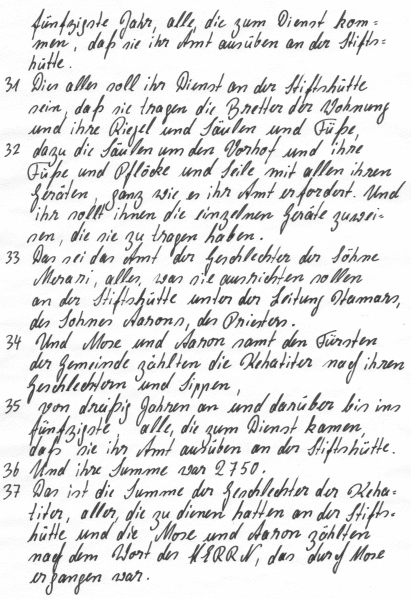 fünfzigste Jahr, alle, die zum Dienst kom=
men, daß sie ihr Amt ausüben an der Stifts=
hütte.
31 Dies alles soll ihr Dienst an der Stiftshütte
sein, daß sie tragen die Bretter der Wohnung
und ihre Riegel und Säulen und Füße,
32 dazu die Säulen um den Vorhof und ihre
Füße und Pflöcke und Seile mit allen ihren
Geräten, ganz wie es ihr Amt erfordert. Und
ihr sollt ihnen die einzelnen Geräte zuwei=
sen, die sie zu tragen haben.
33 Das sei das Amt der Geschlechter der Söhne
Merari, alles, was sie ausrichten sollen
an der Stiftshütte unter der Leitung Itamars,
des Sohnes Aarons, des Priesters.
34 Und Mose und Aaron samt den Fürsten
der Gemeinde zählten die Kehatiter nach ihren
Geschlechtern und Sippen,
35 von dreißig Jahren an und darüber bis ins
fünfzigste alle, die zum Dienst kamen,
daß sie ihr Amt ausüben an der Stiftshütte.
36 Und ihre Summe war 2750.
37 Das ist die Summe der Geschlechter der Keha=
titer, aller, die zu dienen hatten an der Stifts=
hütte und die Mose und Aaron zählten
nach dem Wort des HERRN, das durch Mose
ergangen war.